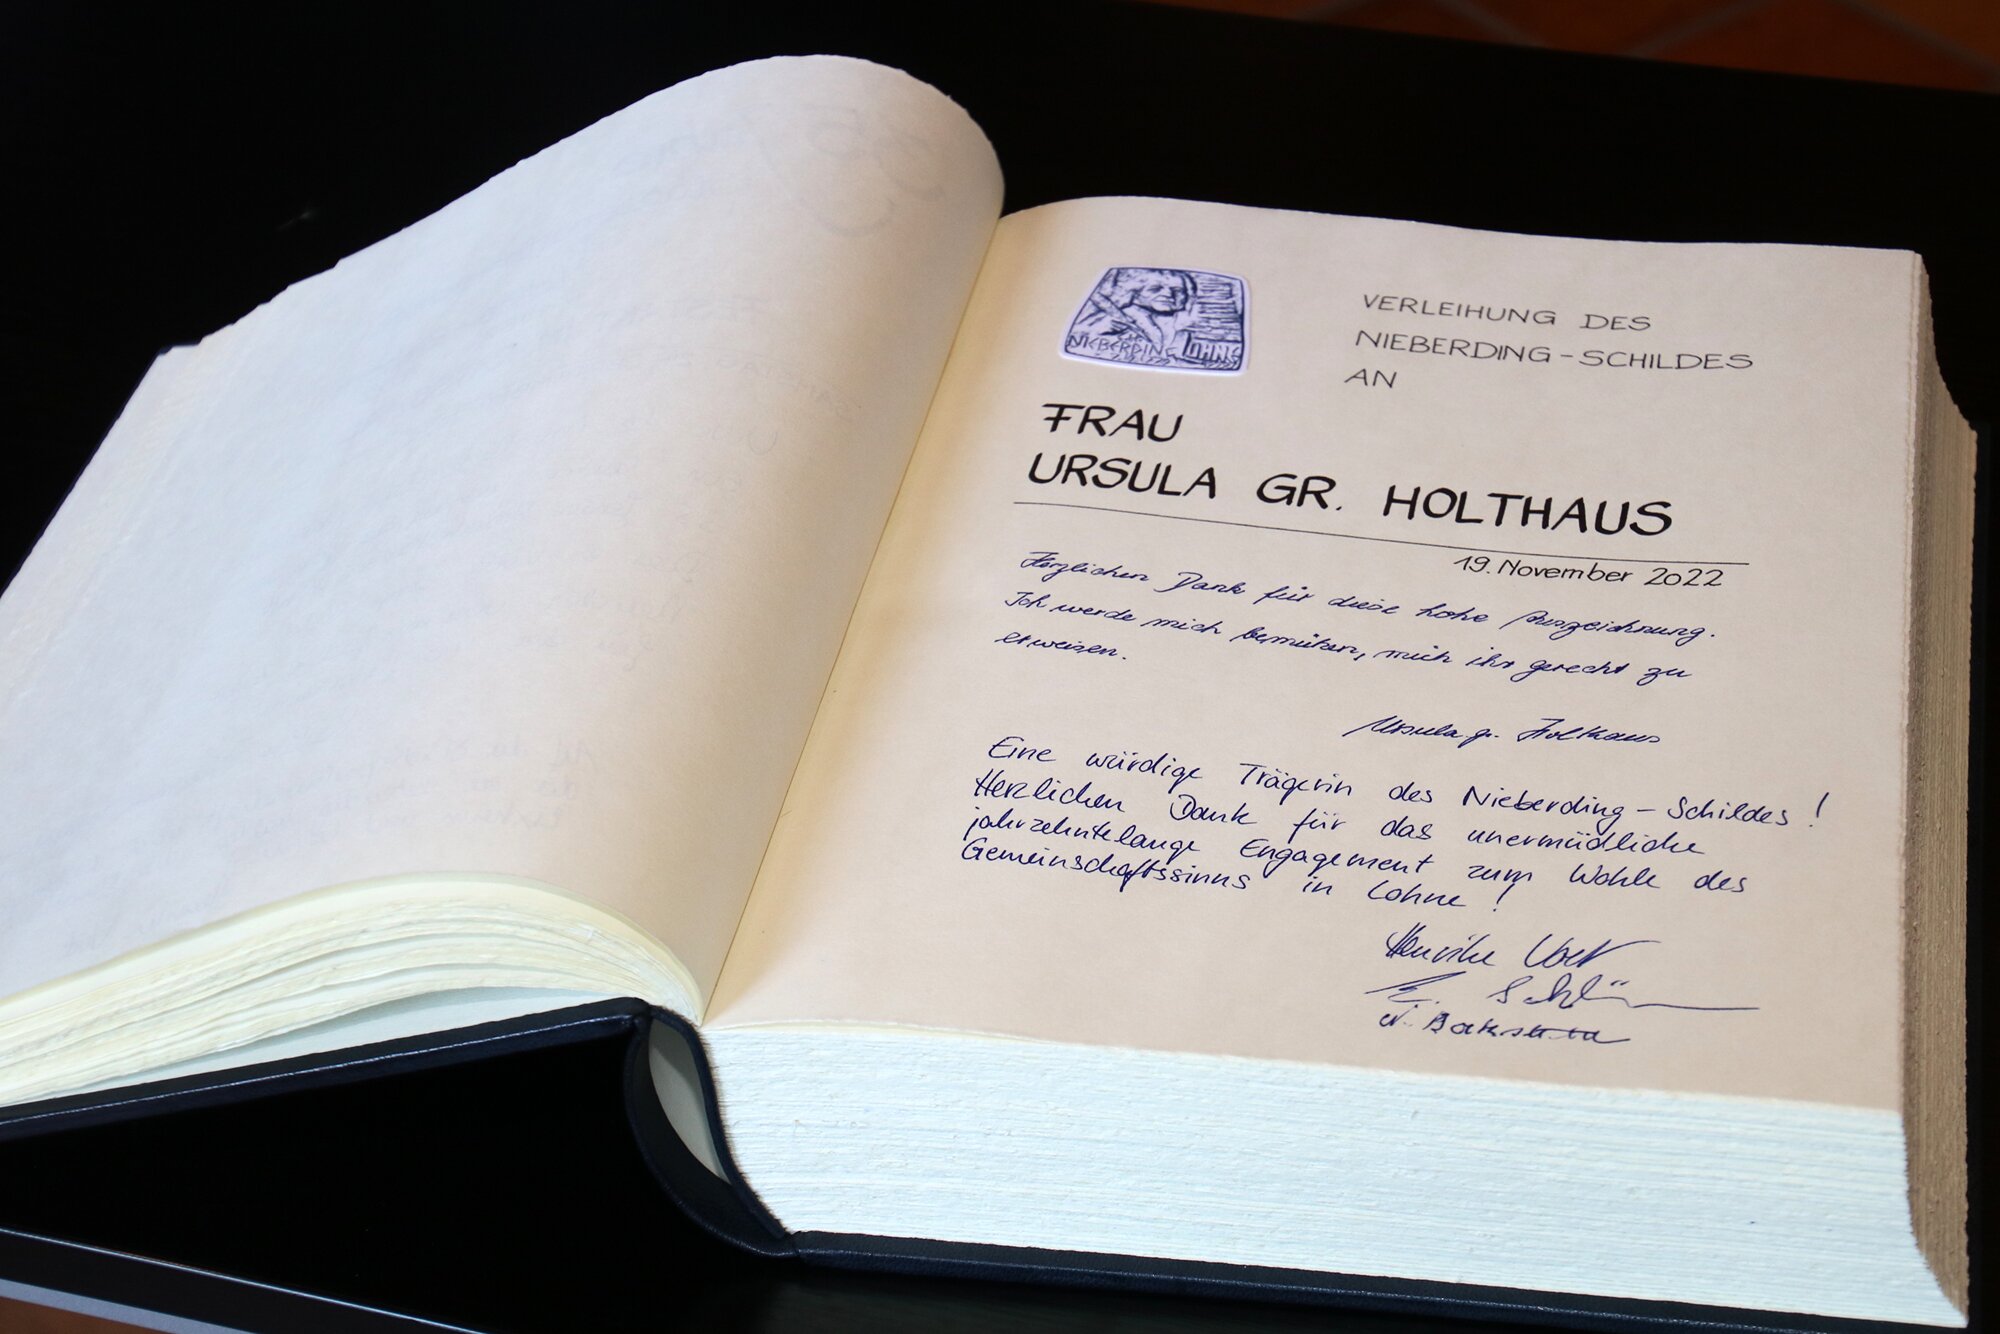 NIEBERDING LOHNE
VERLEIHUNG DES
NIEBERDING-SCHILDES
AN
FRAU
URSULA GR. HOLTHAUS
19. November 2022
Herzlichen Dank für diese hohe Auszeichnung.
Ich werde mich bemühen, mich ihr gerecht zu
erweisen.
Ursula gr. Holthaus
Eine würdige Trägerin des Nieberding-Schildes!
Herzlichen Dank für das unermüdliche
jahrzehntelange Engagement zum Wohle des
Gemeinschaftssinns in Lohne!
Henrike Voet